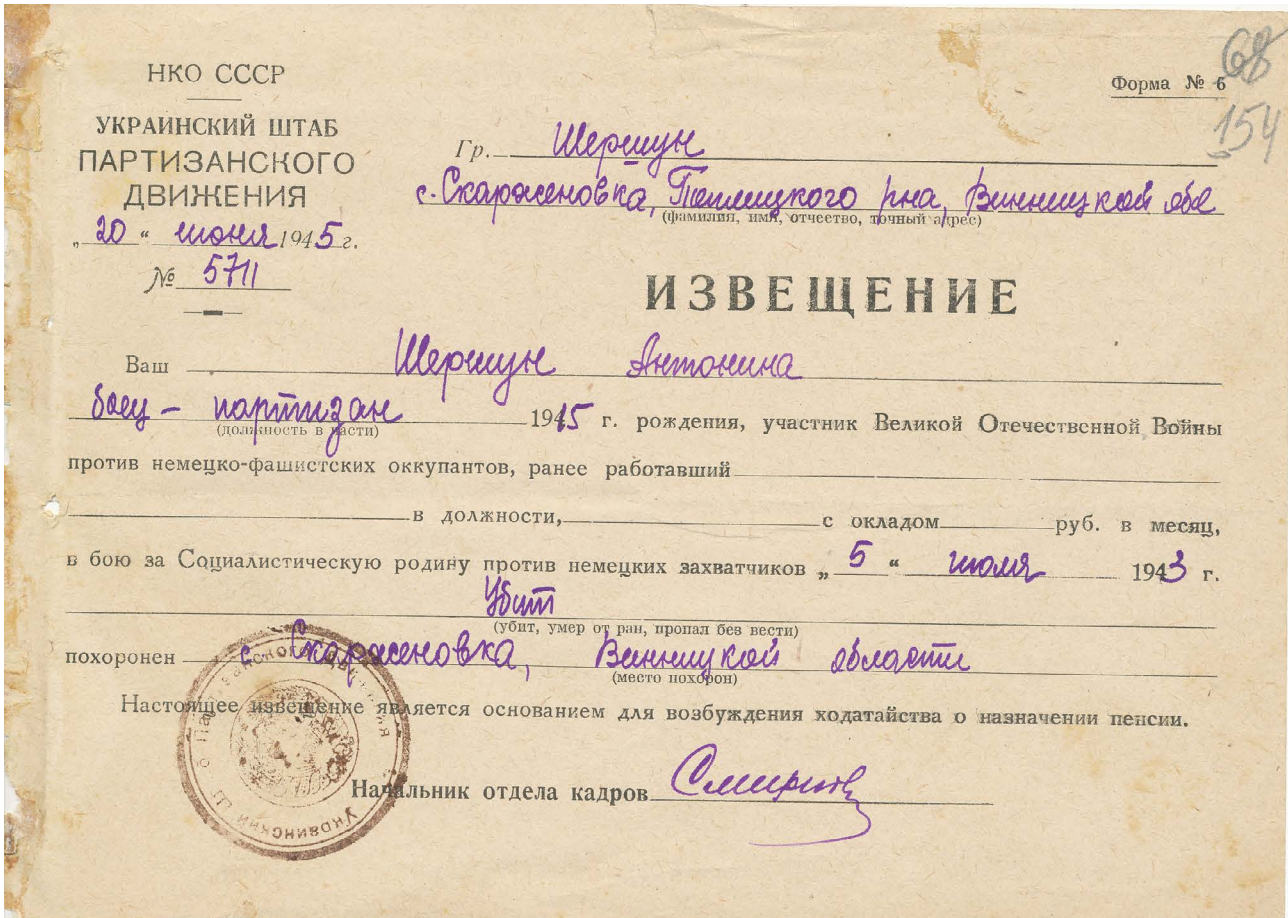 68
Форма № 6
154
НКО СССР
УКРАИНСКИЙ ШТАБ
ПАРТИЗАНСКОГО
ДВИЖЕНИЯ
„20“ июня 1945 г.
№ 5711
Гр. Шершун
с. Скарженовка, рна, Винницкой обл
(фамилия, имя, отчество, точный адрес)
ИЗВЕЩЕНИЕ
Ваш Шершун Антонина
боец – партизан 1915 г. рождения, участник Великой Отечественной Войны
(должность в части)
против немецко-фашистских оккупантов, ранее работавший
в должности, с окладом руб. в месяц,
в бою за Социалистическую родину против немецких захватчиков „5“ июля 1943 г.
Убит
(убит, умер от ран, пропал без вести)
похоронен с. Скарженовка, Винницкой области
(место похорон)
Настоящее извещение является основанием для возбуждения ходатайства о назначении пенсии.
Начальник отдела кадров Смирнов
Украинский Движения